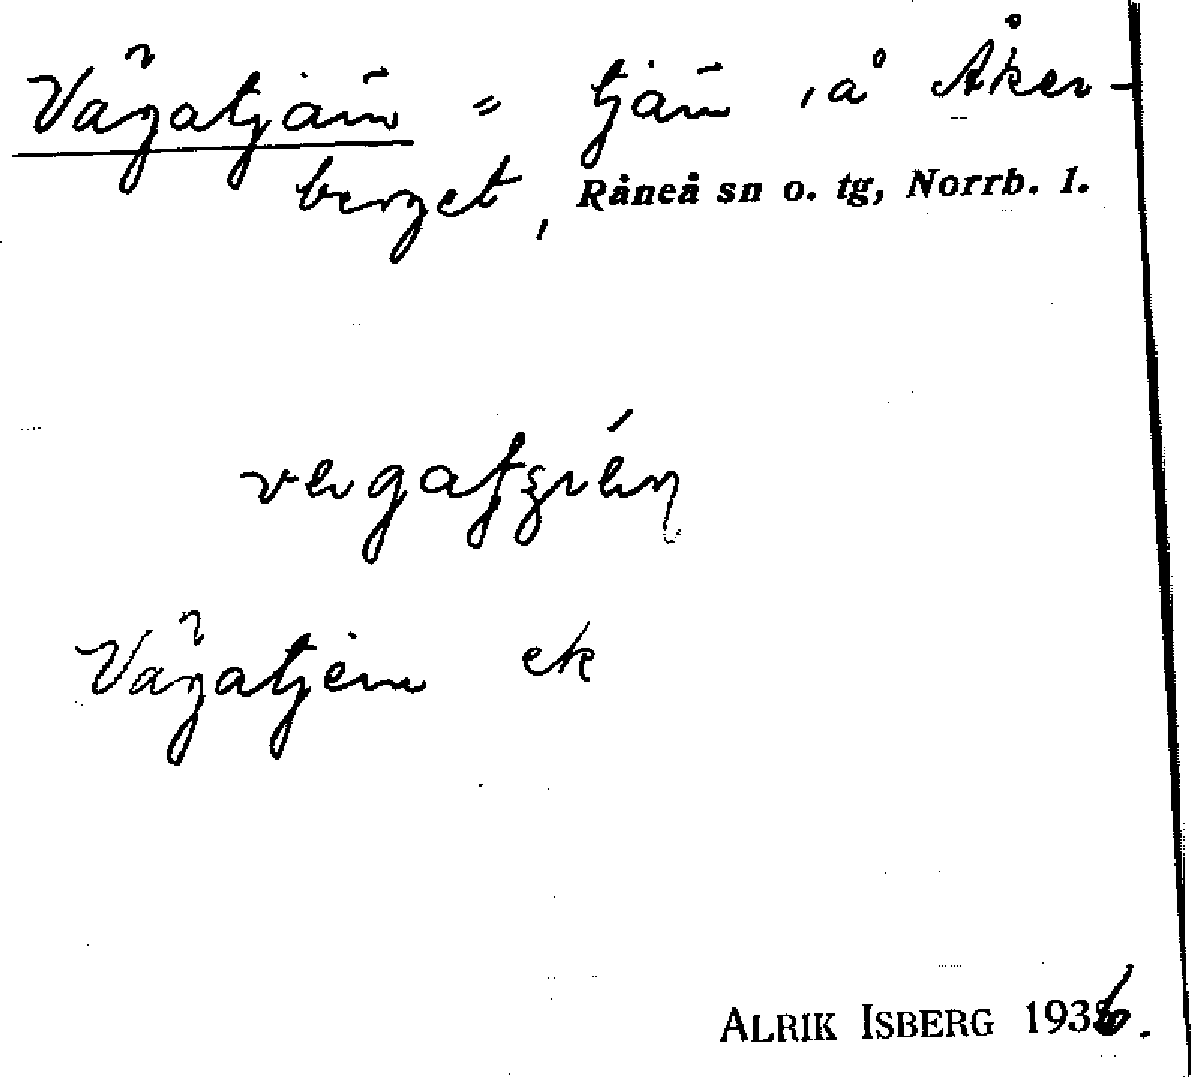 Vågatjärn = tjärn, å Åker-
berget, Råneå sn o. tg, Norrb. l.
Vågatjern ek
ALRIK ISBERG 1936.